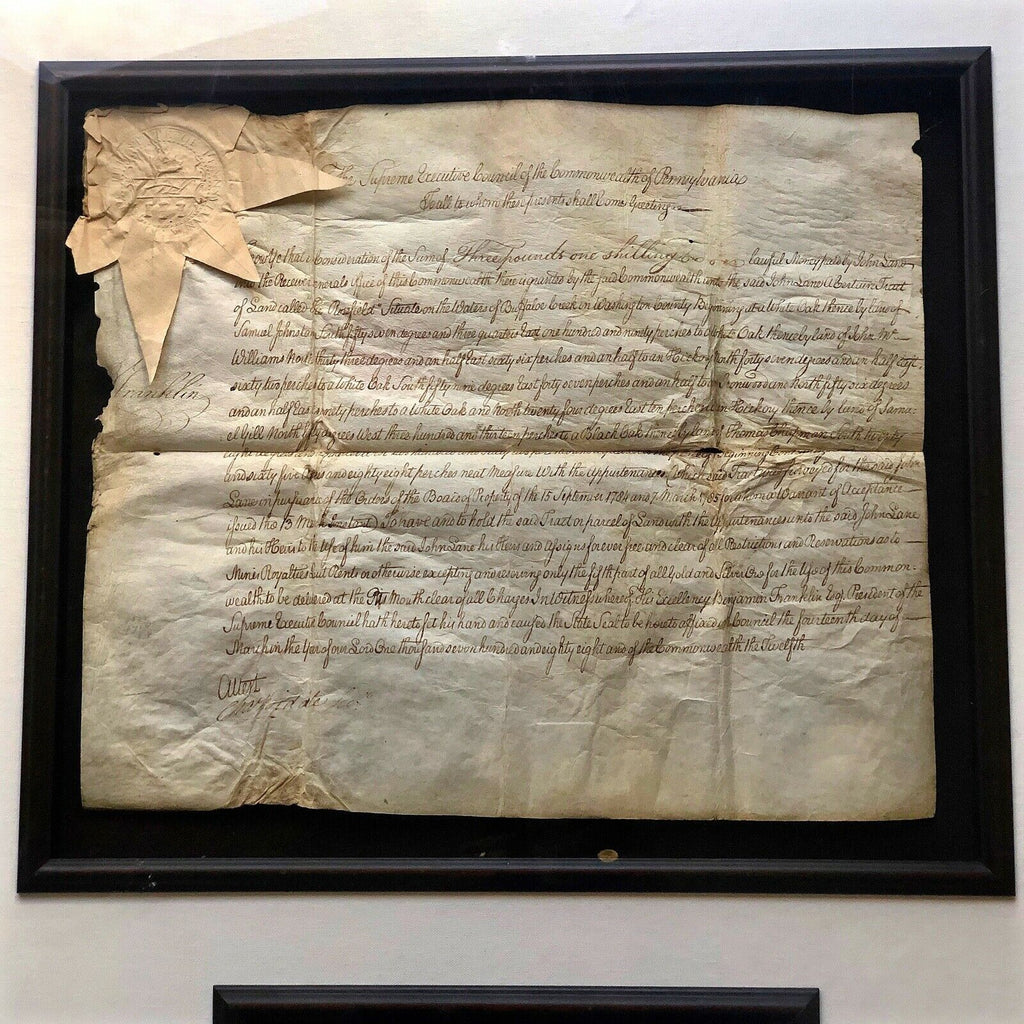 The Supreme Executive Council of the Commonwealth of Pennsylvania
To all to whom these presents shall Come Greeting
Know Ye that in Consideration of the Sum of Three pounds one shilling lawful Money paid by John Lane
into the Receiver Generals office of this Commonwealth there is granted by the said Commonwealth unto the said John Lane a Certain Tract
of Land called Situate on the Waters of Buffaloe Creek in Washington County Beginning at a White Oak thence by land of
Samuel Johnston fifty seven degrees and three quarters East one hundred and ninety perches to a White Oak thence by land of John Mc
Williams North thirty three degrees and an half East sixty six perches and an half to an Hickory North forty seven degrees and an half East
sixty two perches to a White Oak South fifty nine degrees East forty seven perches and an half to and North fifty six degrees
and an half East ninety perches to a White Oak and North twenty four degrees East ten perches to an Hickory thence by land of Samu
el Gill North degrees West three hundred and thirteen perches to a Black Oak thence by land of Thomas Chapman South twenty
and sixty five Acres and eighty eight perches neat Measure With the Appurtenances (Which said Tract was surveyed for the said John
Lane in pursuance of the Orders of the Board of Property of the 15 September 1784 and 7 March 1785 for whom a Warrant of Acceptance
issued the 13 March Instant) To have and to hold the said Tract or parcel of Land with the Appurtenances unto the said John Lane
and his Heirs to the Use of him the said John Lane his Heirs and Assigns forever free and clear of all Restrictions and Reservations as to
Mines Royalties Quit Rents or otherwise excepting and reserving only the fifth part of all Gold and Silver Ore for the Use of this Common-
wealth to be delivered at the Pitt Mouth clear of all Charges In Witness whereof His Excellency Benjamin Franklin Esqr. President of the
Supreme Executive Council hath hereto set his hand and caused the State Seal to be hereto affixed in Council the fourteenth day of
March in the Year of our Lord One thousand seven hundred and eighty eight and of the Commonwealth the Twelfth
Franklin
Attest